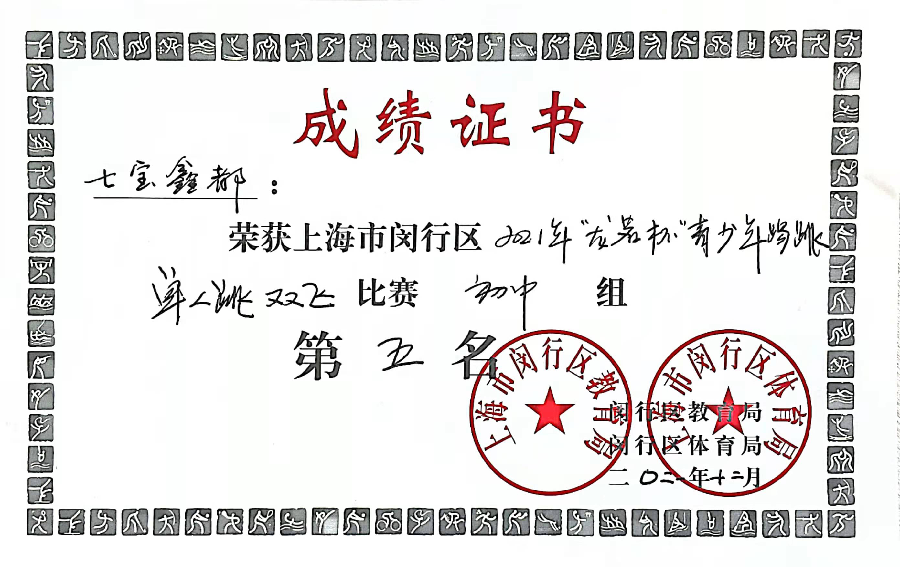 成绩证书
七宝鑫都：
荣获上海市闵行区 2021年"龙若杯"青少年踢跳
单人跳双飞 比赛 初中 组
第 五 名
上海市闵行区教育局
上海市闵行区体育局
闵行区教育局
闵行区体育局
二〇二一年十二月